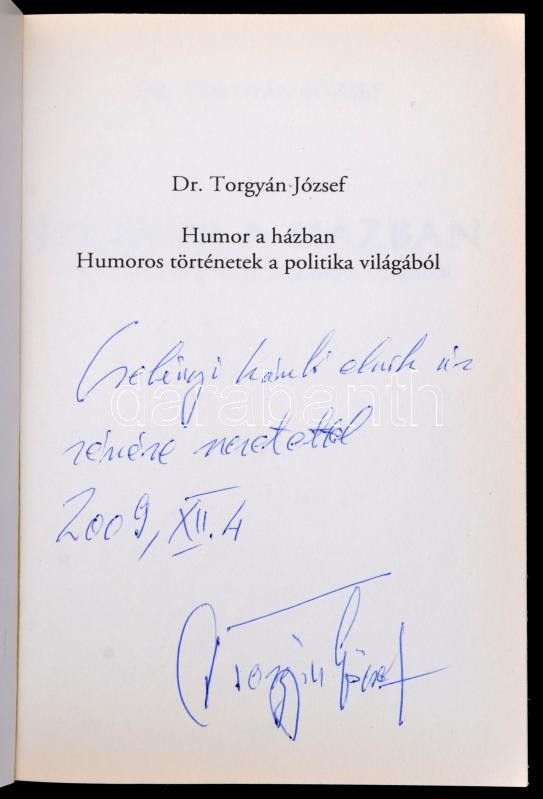 Dr. Torgyán József
Humor a házban
Humoros történetek a politika világából
elnök úr
részére szeretettel
2009, XII. 4
Torgyán József
darabanth